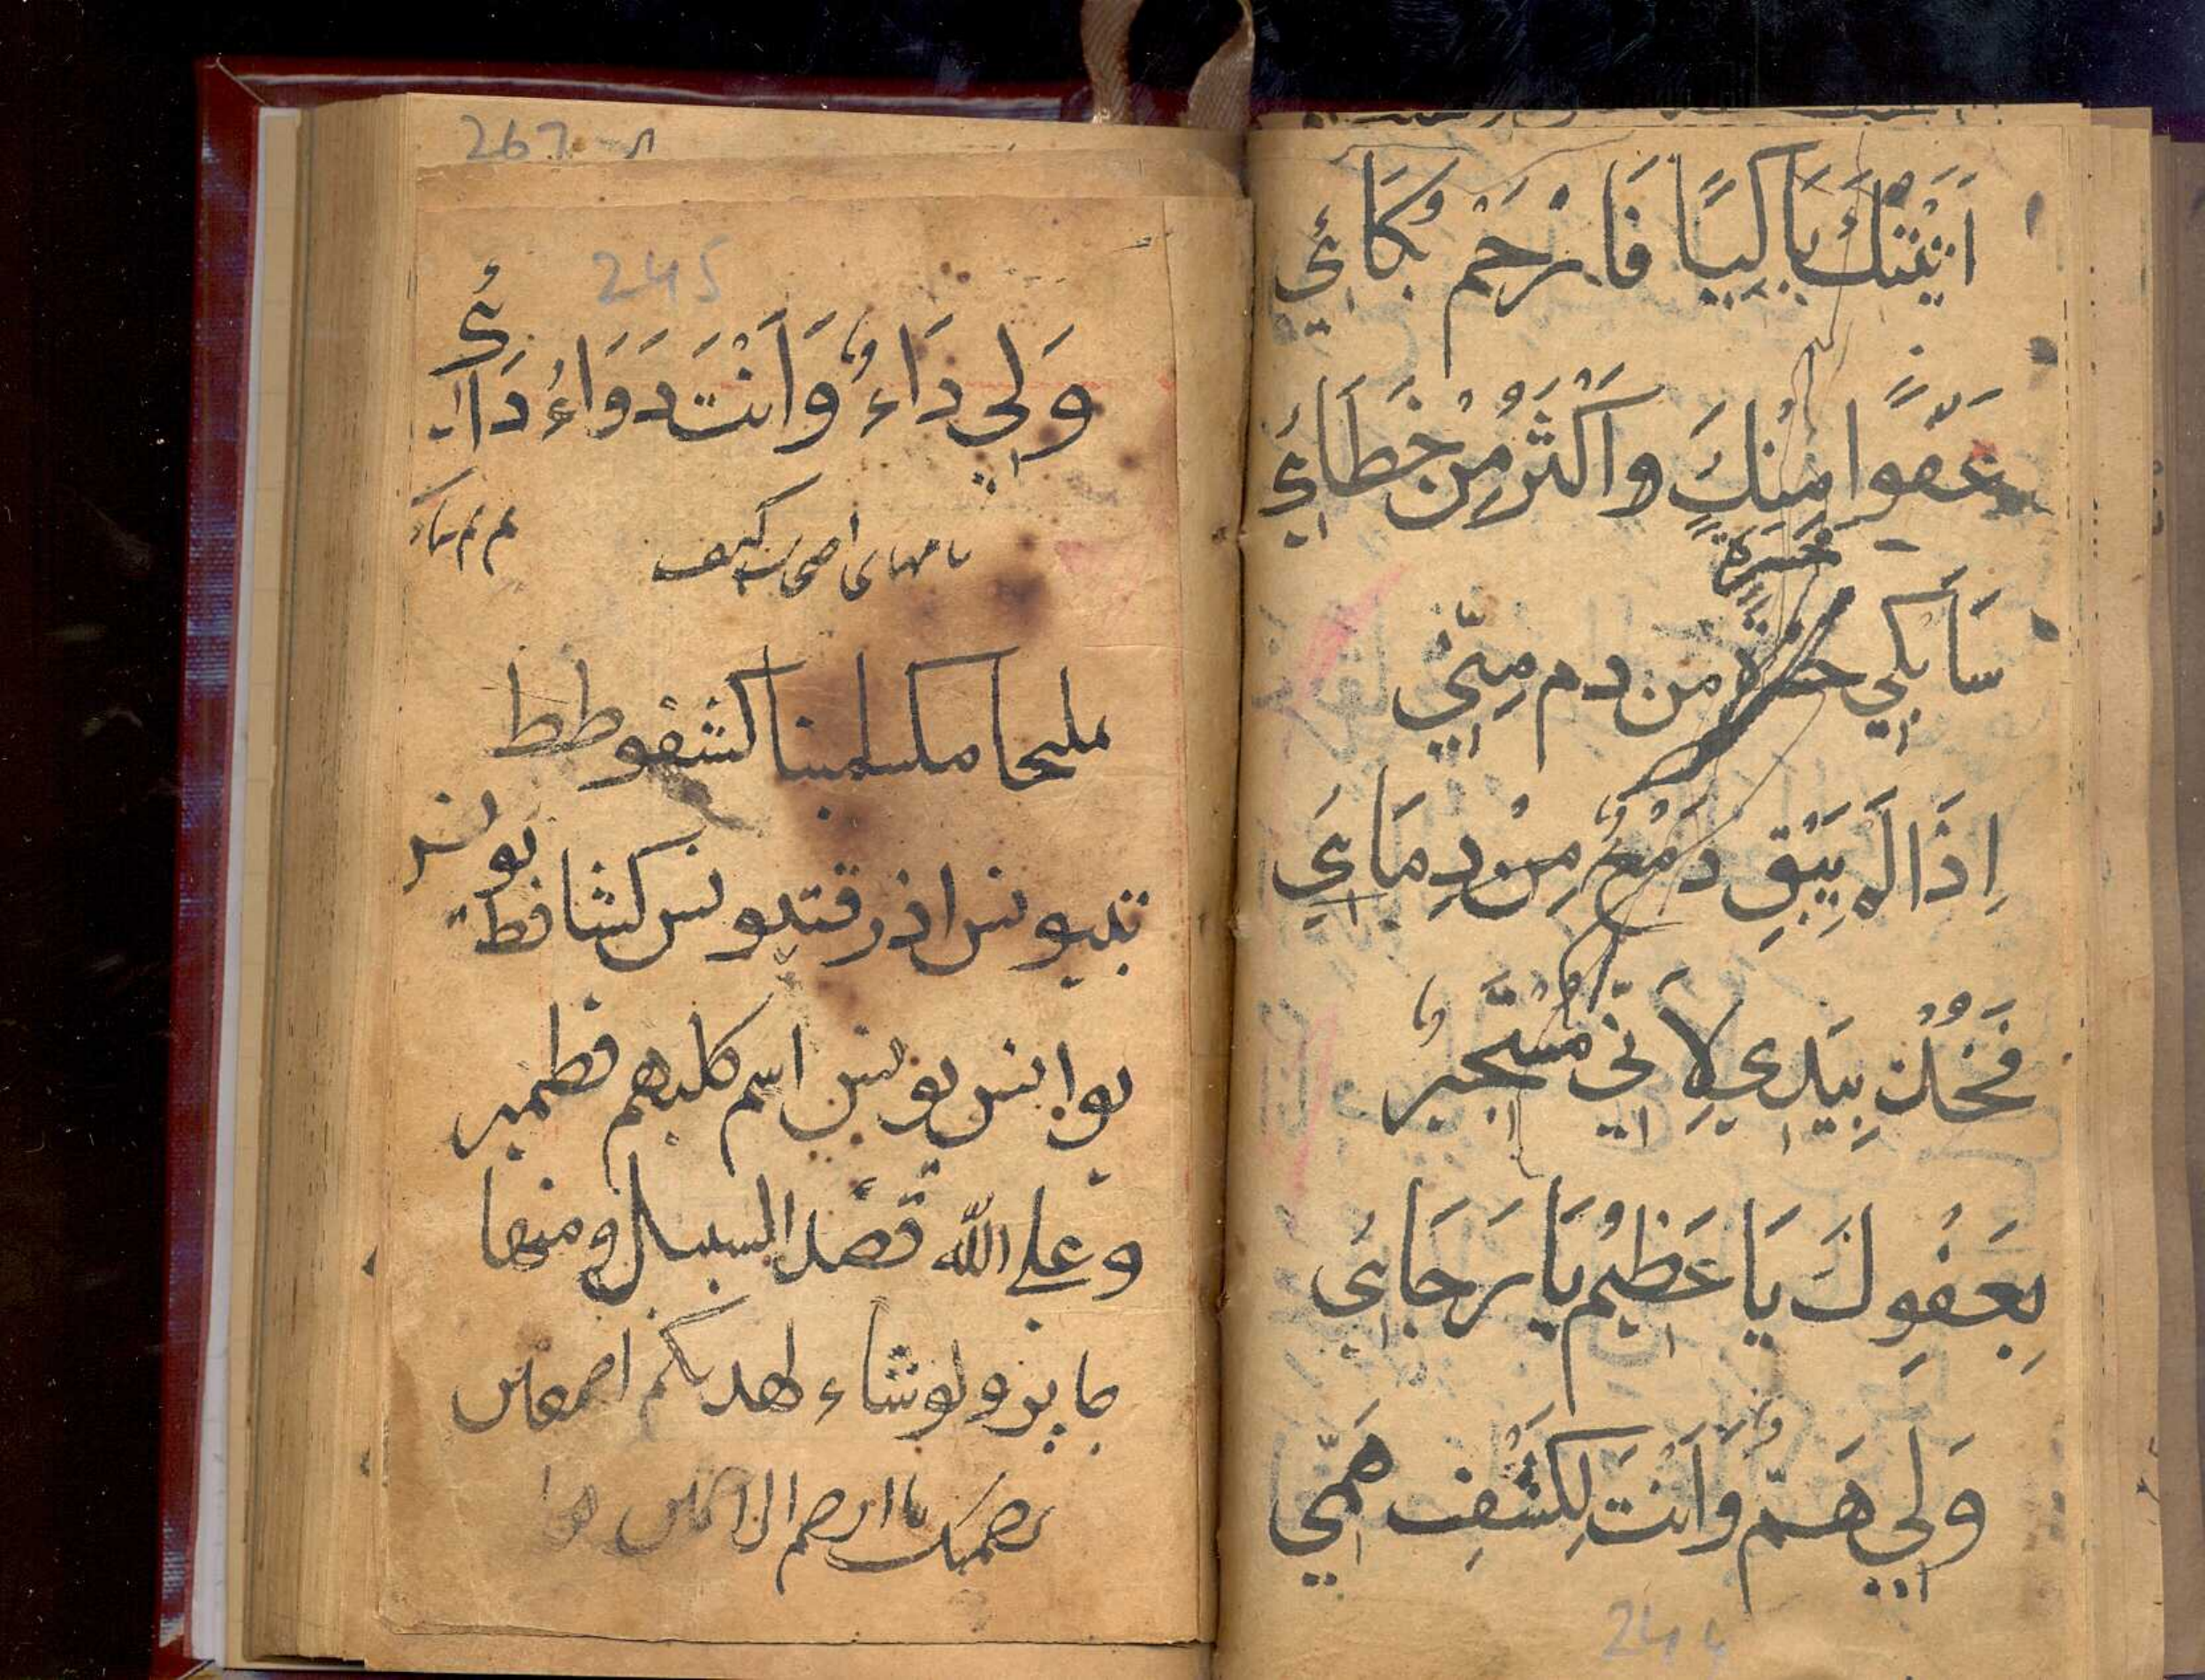 اَتَيْتُكَ بَاكِيًا فَارْحَمْ بُكَائِي
عَفْوًا مِنْكَ وَاَكْثَرُ مِنْ خَطَائِي
حَسْرَةً
سَاَبْكِي من دم مِنِّي
اِذَا لَمْ يَبْقِ دَمْعٌ مِنْ دِمَائِي
فَخُذْ بِيَدِي لِاَنِّي مُسْتَجِيرٌ
بِعَفْوِكَ يَا عَظِيمُ يَا رَجَائِي
وَلِي هَمٌّ وَاَنْتَ لِكَشْفِ هَمِّي
244
267
245
وَلِي دَاءٌ وَاَنْتَ دَوَاءُ دَائِي
نامهای اصحاب کهف
مليخا مكسلمينا كشفوططط
تبيونس اذرقتيونس كشافط يونس
يوانس بونس اسم كلبهم قطمير
وعلى الله قصد السبيل ومنها
جايز ولو شاء لهديكم اجمعين
برحمتك يا ارحم الراحمين